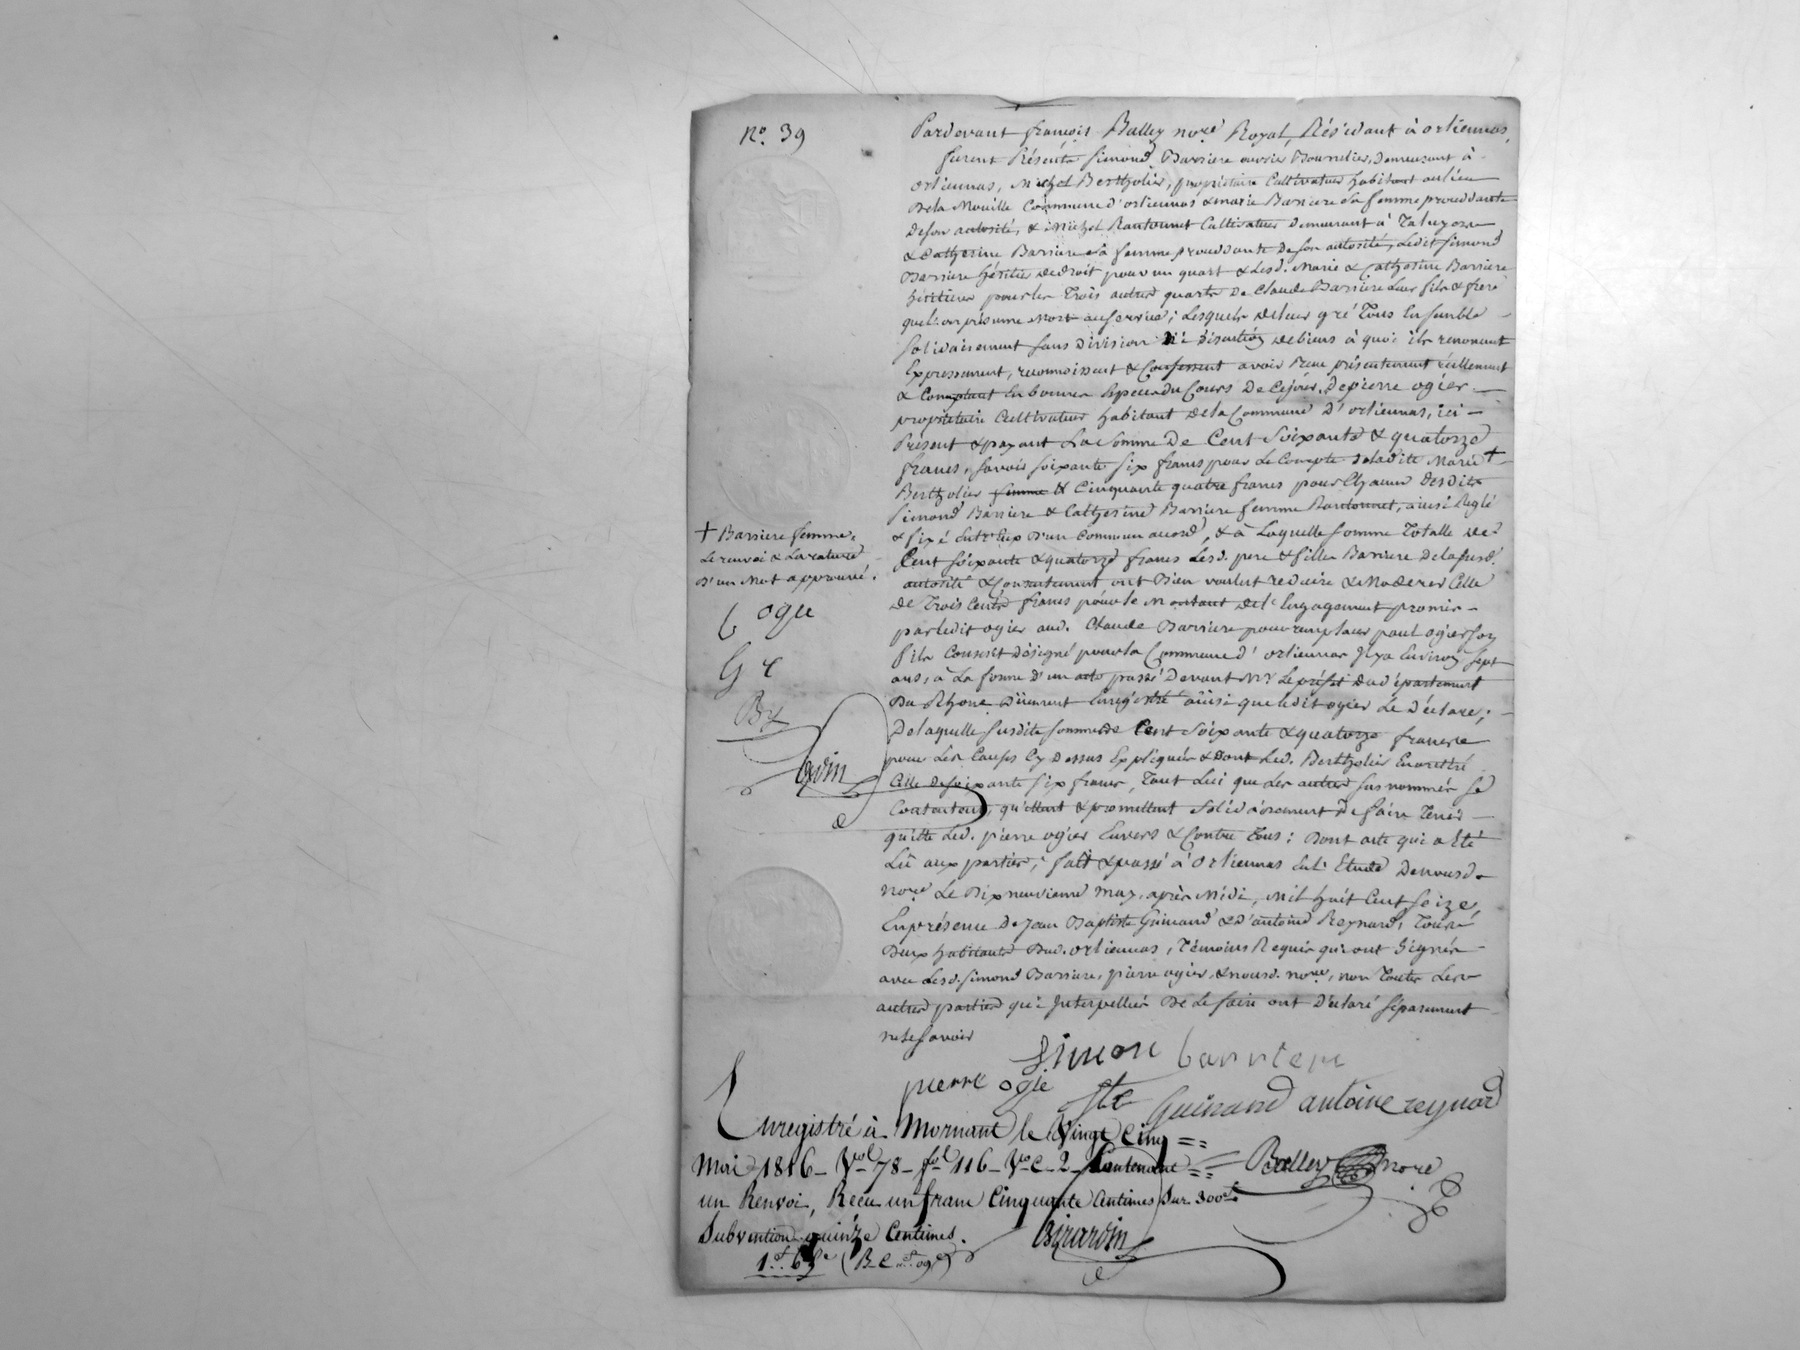 N.º 39
Pardevant françois Balley no.re Royal, Résidant à orliennas,
furent Présents simond Barriere ouvrier Bourrelier, Demeurant à
orliennas, Michel Bertholier, propriétaire Cultivateur habitant au lieu
De la Mouille Commune d'orliennas & marie Barriere sa femme proceddante
de son autorité, & Michel Rantonnet Cultivateur Demeurant à Taluyers
& Catherine Barriere sa femme proceddante De son autorité, Ledit simond
Barriere héritier de droit pour un quart & Lesd. Marie & Catherine Barriere
héritieres pour les Trois autres quarts De Claude Barriere Leur fils & frere
quel'on présume Mort au service; Lesquels de leur gré Tous Ensemble
solidairement sans division ni discution de biens à quoi ils renoncent
Expressement, reconnoissent & Confessent avoir Recu présentement réellement
& Comptant En bonnes Especes du Cours De Ce jour, De pierre ogier
propriétaire Cultivateur habitant de la Commune D'orliennas, ici
Présent & payant La somme De Cent Soixante & quatorze
francs, savoir soixante six francs pour Le Compte de ladite Marie +
Bertholier femme & Cinquante quatre francs pour Chacun Desdits
simond Barriere & Catherine Barriere femme Rantonnet, ainsi Réglé
& fixé Entr'Eux D'un Commun accord, & à Laquelle somme Totalle de
Cent soixante & quatorze francs Lesd. pere & filles Barriere De la susd.
autorité & Consentement ont Bien voulut reduire & Moderer Celle
De Trois Cents francs pour le Montant de l'Engagement promis
par ledit ogier aud. Claude Barriere pour remplacer paul ogier son
fils Conscrit Désigné pour la Commune d'orliennas Il y a Environ sept
ans, à La forme d'un acte passé Devant Mr. Le préfet du Département
Du Rhone Düement Enregistré ainsi que ledit ogier Le Déclare;
De laquelle susdite somme de Cent Soixante & quatorze francs
pour Les Causes Cy Dessus Expliquées & Dont Led. Bertholier En a retiré
Celle de soixante six francs, Tant Lui que Les autres sus nommés se
Contentent, quittent & promettent solidairement De faire Tenir
quitte Led. pierre ogier Envers & Contre Tous; Dont acte qui a Eté
Lû aux parties; fait & passé à orliennas En l'Etude De nous d.
no.re Le Dix neuvieme may, après Midi, Mil huit Cent seize,
En présence De Jean Baptiste Guinand & D'antoine Reynard, Tous
Deux habitants Dud. orliennas, Témoins Requis qui ont signé
avec Lesd. simond Barriere, pierre ogier, & nousd. no.re, non Toutes Les
autres parties qui Interpellées De Le faire ont Déclaré séparement
ne le savoir
+ Barriere femme.
Le renvoi & La rature
D'un Mot approuvé.
b ogie
G
Simon barriere
pierre ogie
Guinand antoine reynard
Balley no.re
Enregistré à Mornant le Vingt Cinq
Mai 1816 - Vol. 78 - fol. 116 - Vo. C. 2 - Contenant
un Renvoi, Reçu un franc Cinquante Centimes sur 300f.
Subvention quinze Centimes.
Girardin